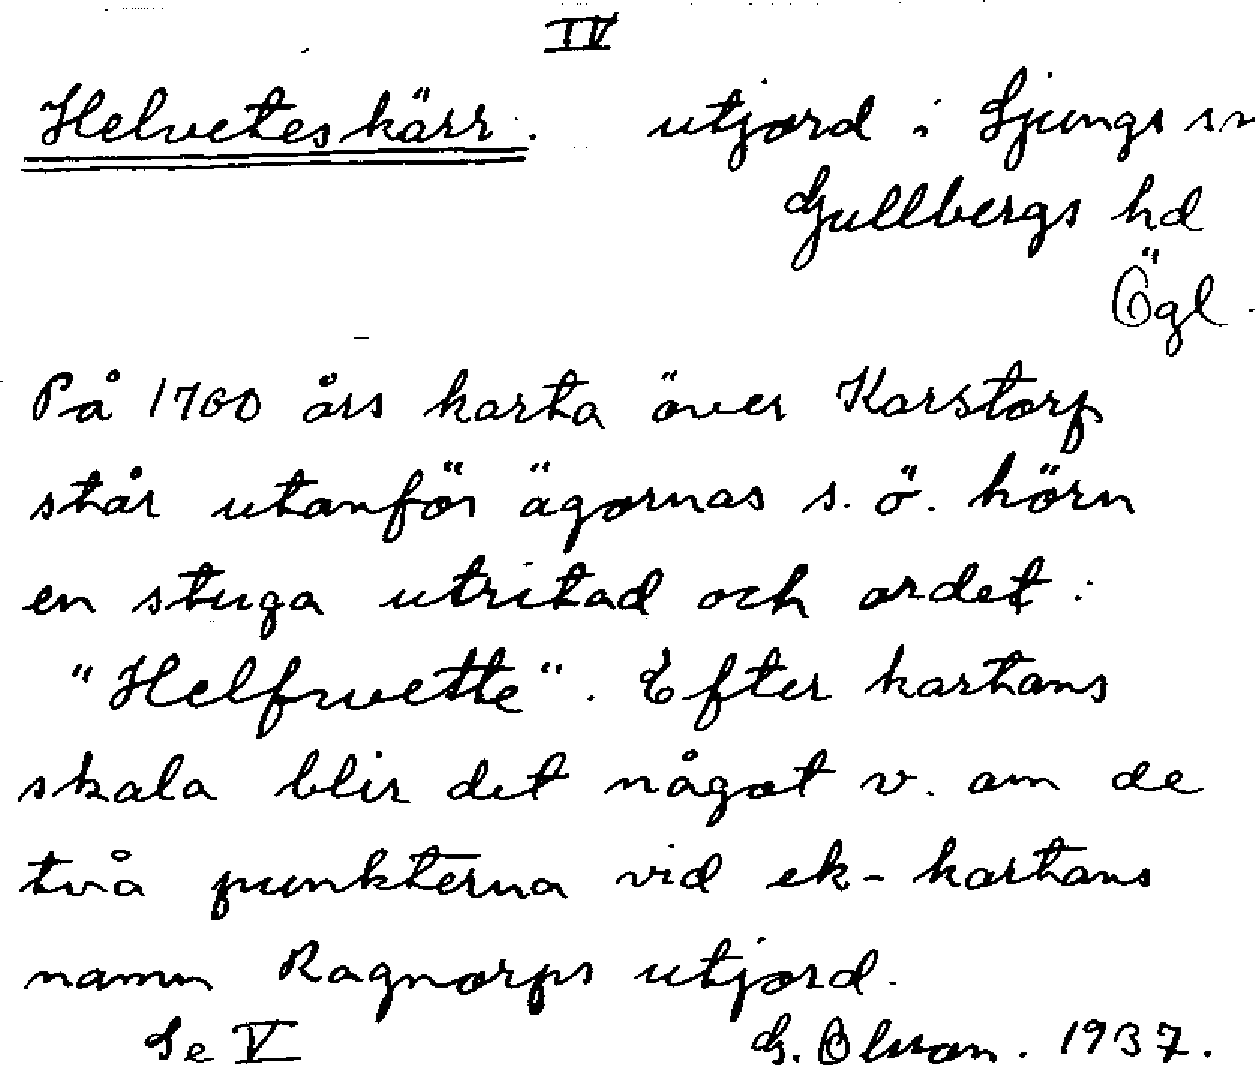 IV
Helveteskärr. utjord i Ljungs sn
Gullbergs hd
Ögl.
På 1760 års karta över Karstorp
står utanför ägornas s.ö. hörn
en stuga utritad och ordet:
"Helfwette". Efter kartans
skala blir det något v. om de
två punkterna vid ek-kartans
namn Ragnorps utjord.
Se V G. Olsson. 1937.